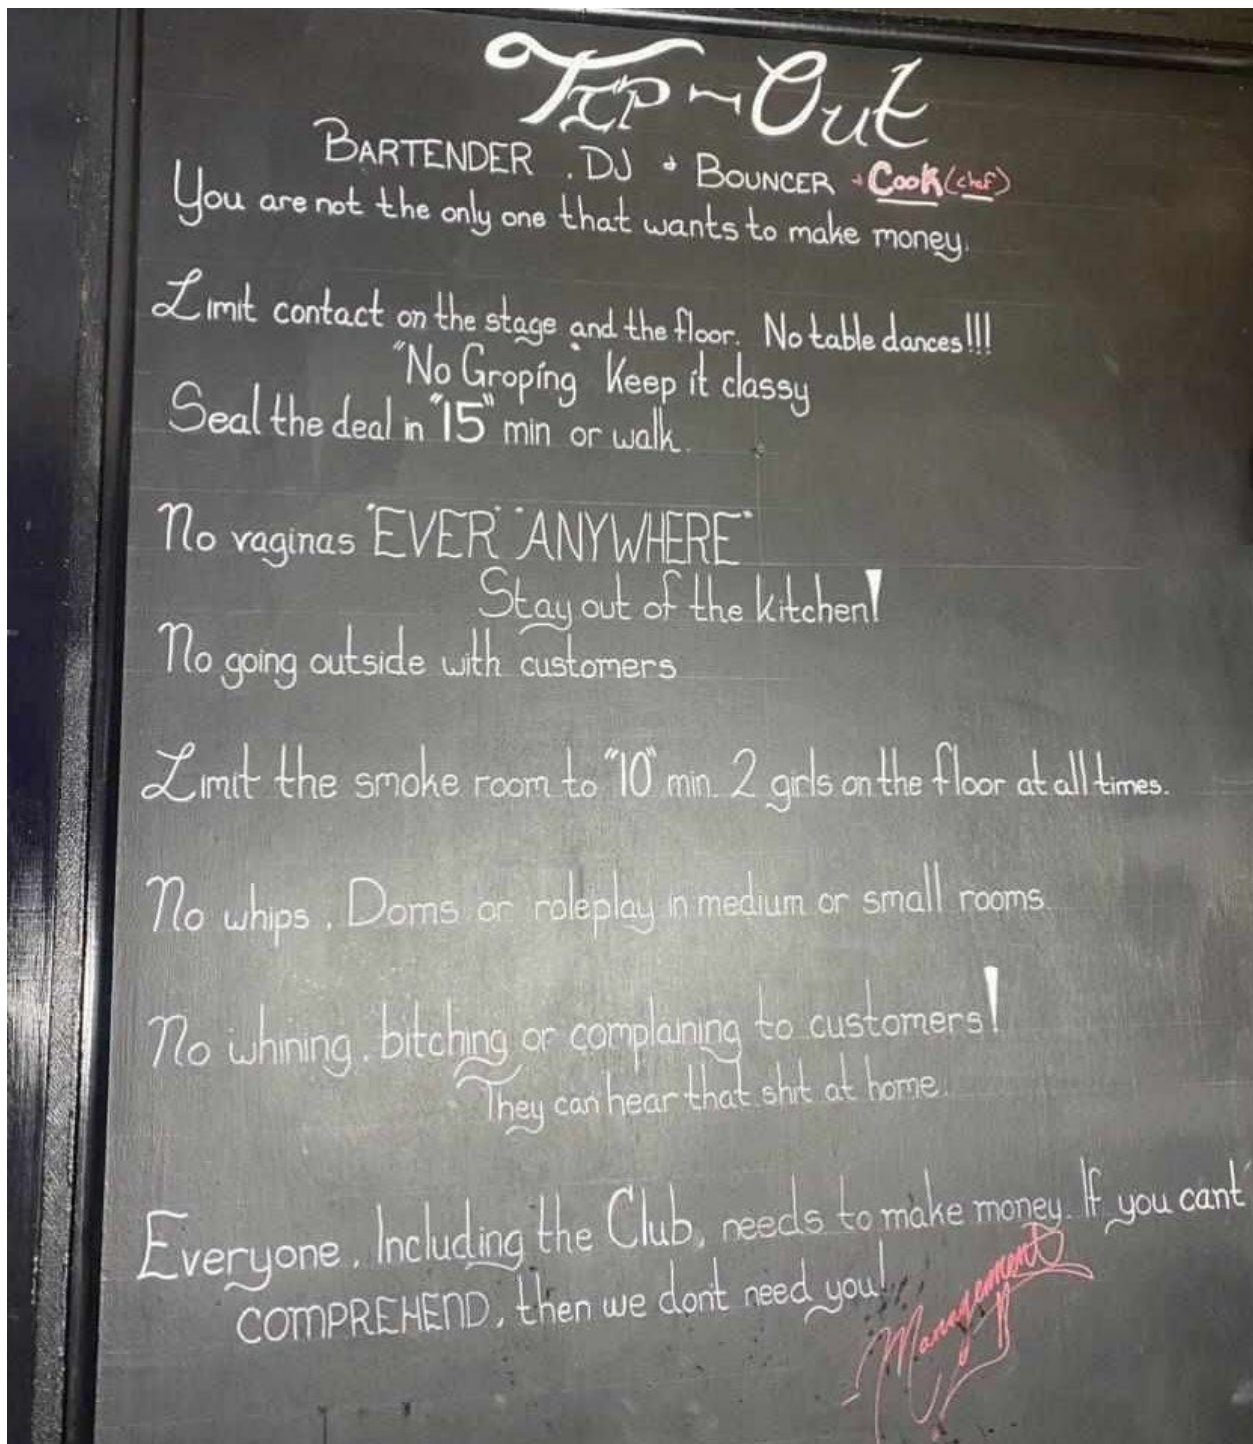 Tip-Out
Bartender . DJ + Bouncer + Cook (chef)
You are not the only one that wants to make money.
Limit contact on the stage and the floor. No table dances!!!
"No Groping" Keep it classy
Seal the deal in "15" min or walk.
No vaginas "EVER" "ANYWHERE"
Stay out of the kitchen!
No going outside with customers
Limit the smoke room to "10" min. 2 girls on the floor at all times.
No whips, Doms or roleplay in medium or small rooms.
No whining, bitching or complaining to customers!
They can hear that shit at home.
Everyone, Including the Club, needs to make money. If you cant
COMPREHEND, then we don't need you!
Management